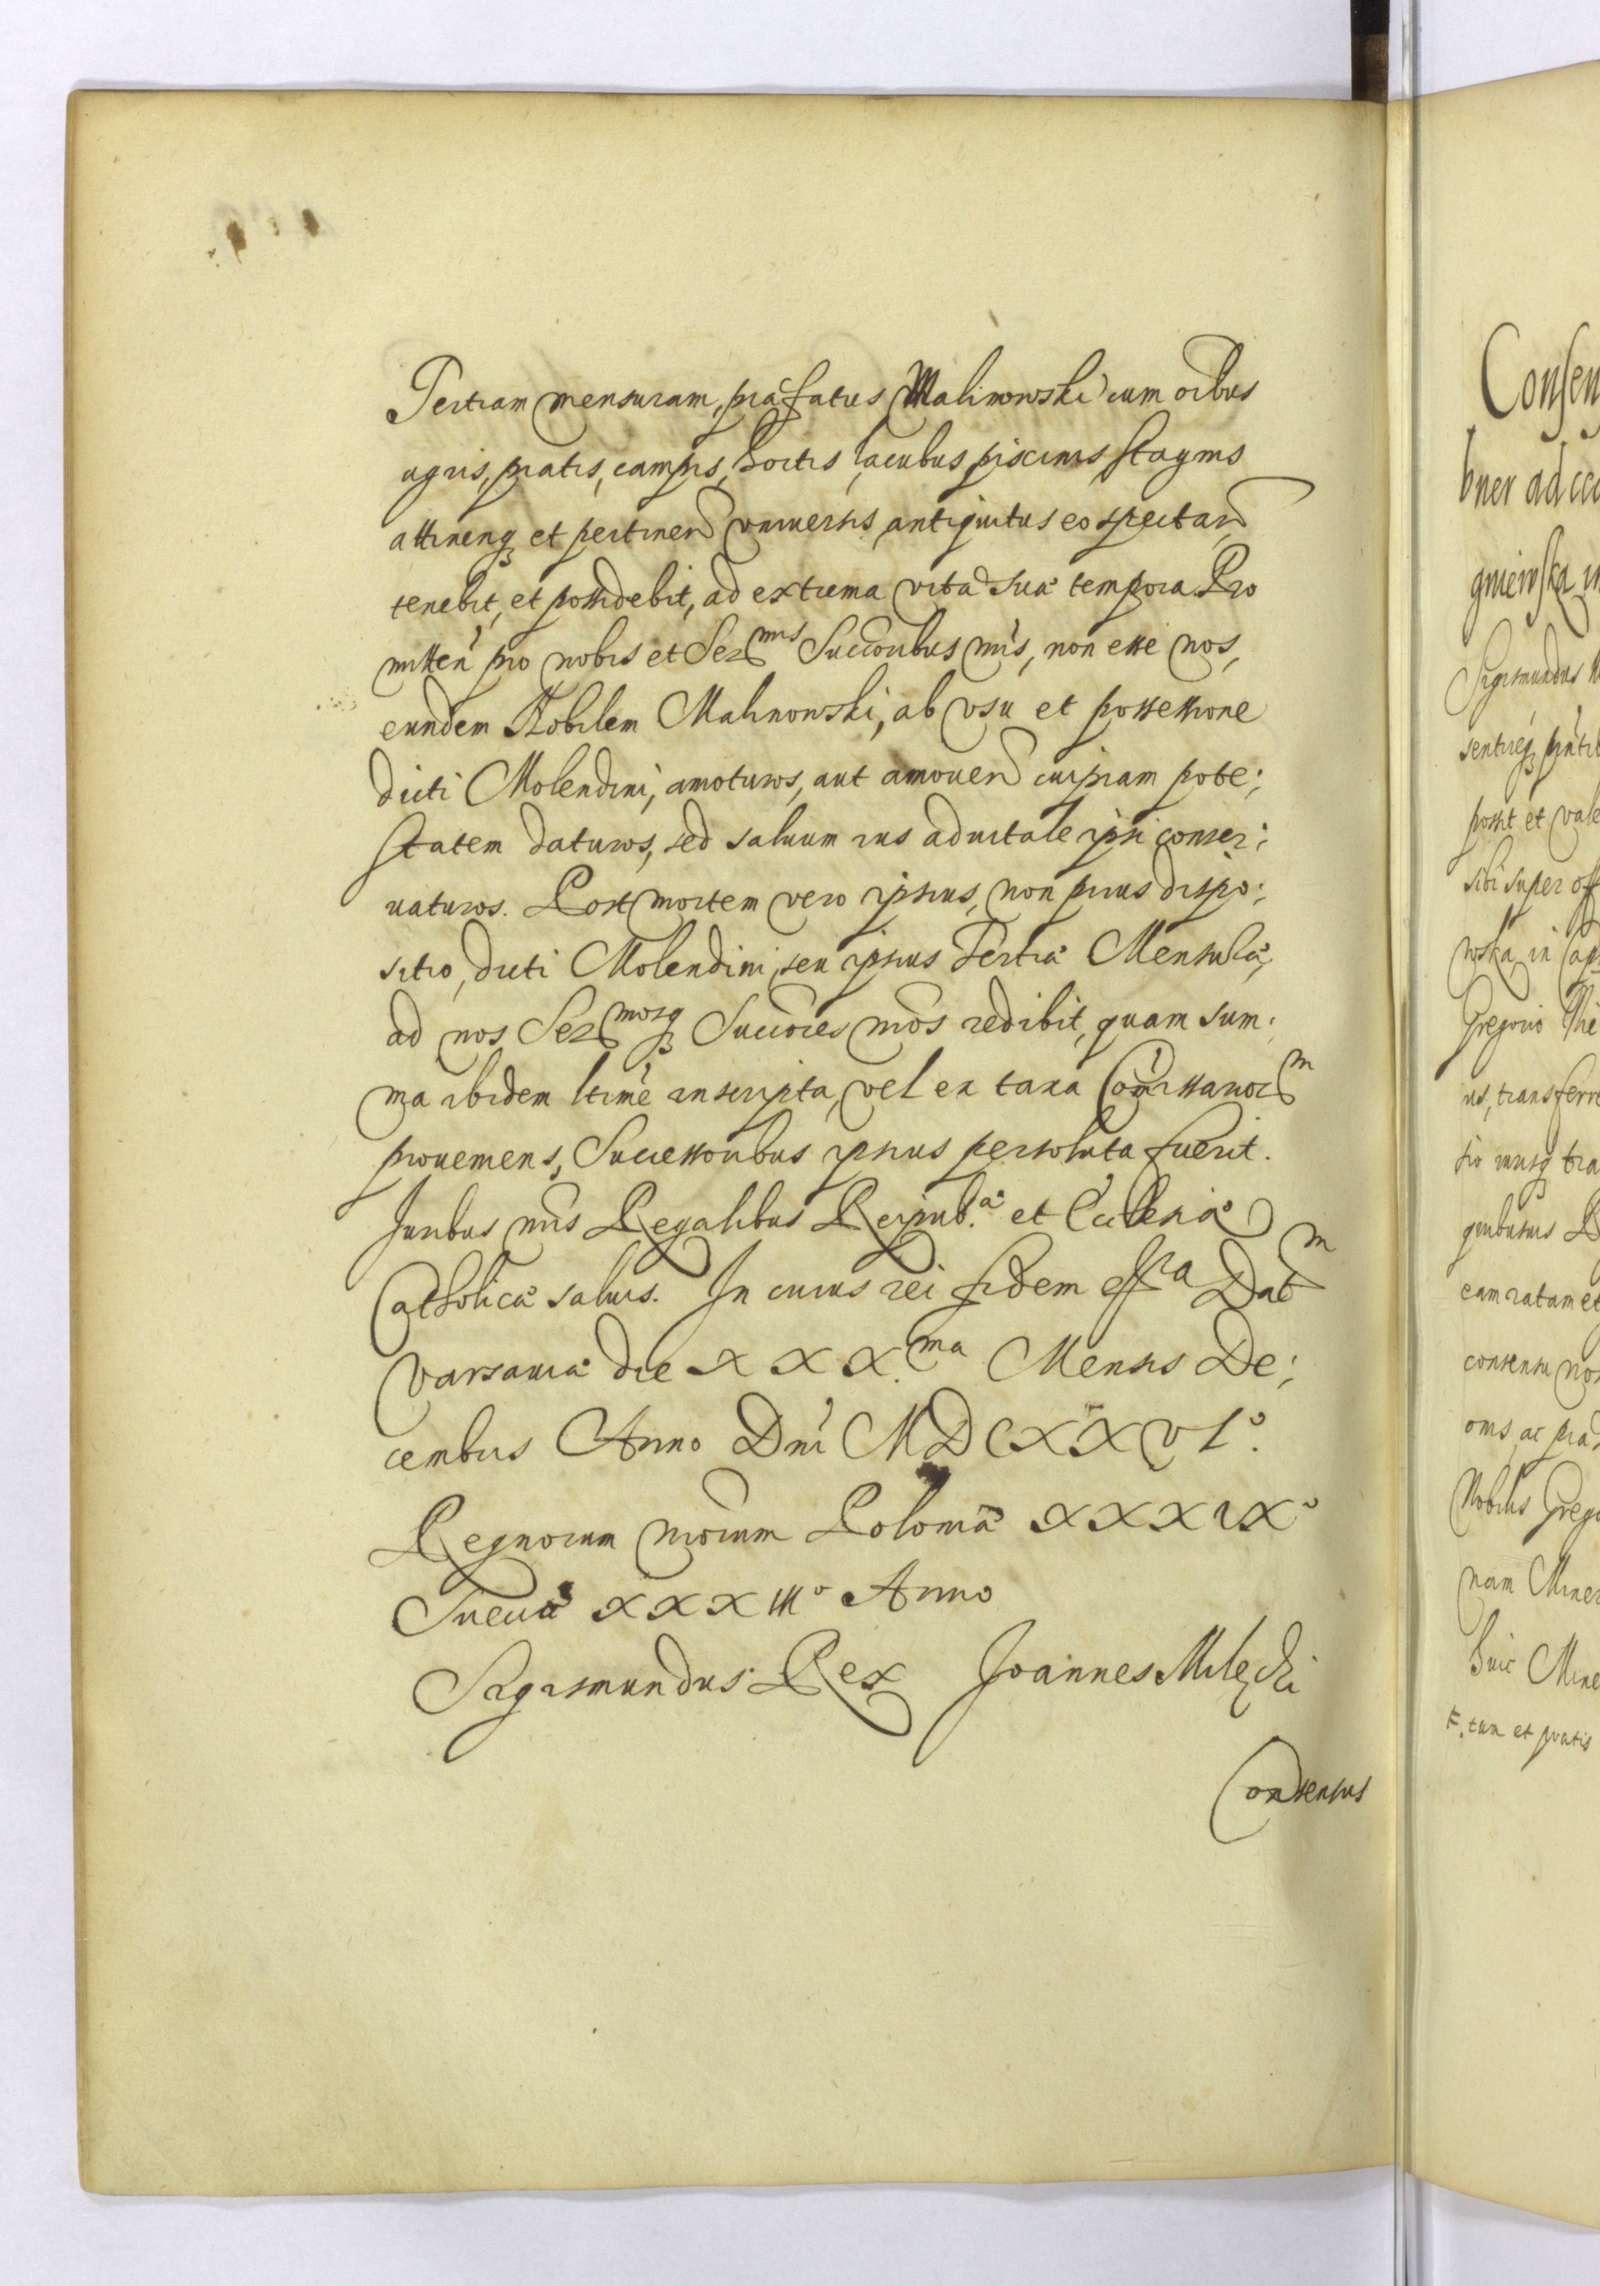 Tertiam mensuram, præfatus Malinowski cum oībus
agris, pratis, campis, hortis, lacubus piscinis stagnis
attinenq₃ et pertinen vniuersis antiquitus eo spectan
tenebit, et possidebit, ad extrema vitæ suæ tempora. Pro
mitten pro nobis et Ser^mis Succōribus nr̄is, non esse nos,
eundem Nobilem Malinowski, ab vsu et possessione
dicti Molendini, amoturos, aut amouen cuipiam pote:
statem daturos, sed saluum ius aduitale ipsi conser:
uaturos. Post mortem vero ipsius, non prius dispo:
sitio, dicti Molendini, seu ipsius Tertiæ Mensuræ,
ad nos, Ser^mosq₃ Succōres nr̄os redibit, quam sum:
ma ibidem ltīme inscripta, vel ex taxa Com̄issarior^m
proueniens, Successoribus ipsius persoluta fuerit.
Juribus nr̄is Regalibus Reipub.^æ et Ecclesiæ
Catholicæ saluis. In cuius rei fidem etc^ra Dat^m
Varsauiæ die XXX.^ma Mensis De:
cembris Anno Dnī MDCXXVI°.
Regnorum nr̄orum Poloniæ XXXIX°
Sueciæ XXXIII° Anno
Sigismundus Rex Joannes Milęcki
Consensus
Consen
bner ad
gniewska in
Sigismundus
possit et vale
sibi super
wska, in Cap
Gregorio
us, transferre
quibusuis
eam ratam et
consensu nos
Nobilis Grego
nam
huic
tum et pratis